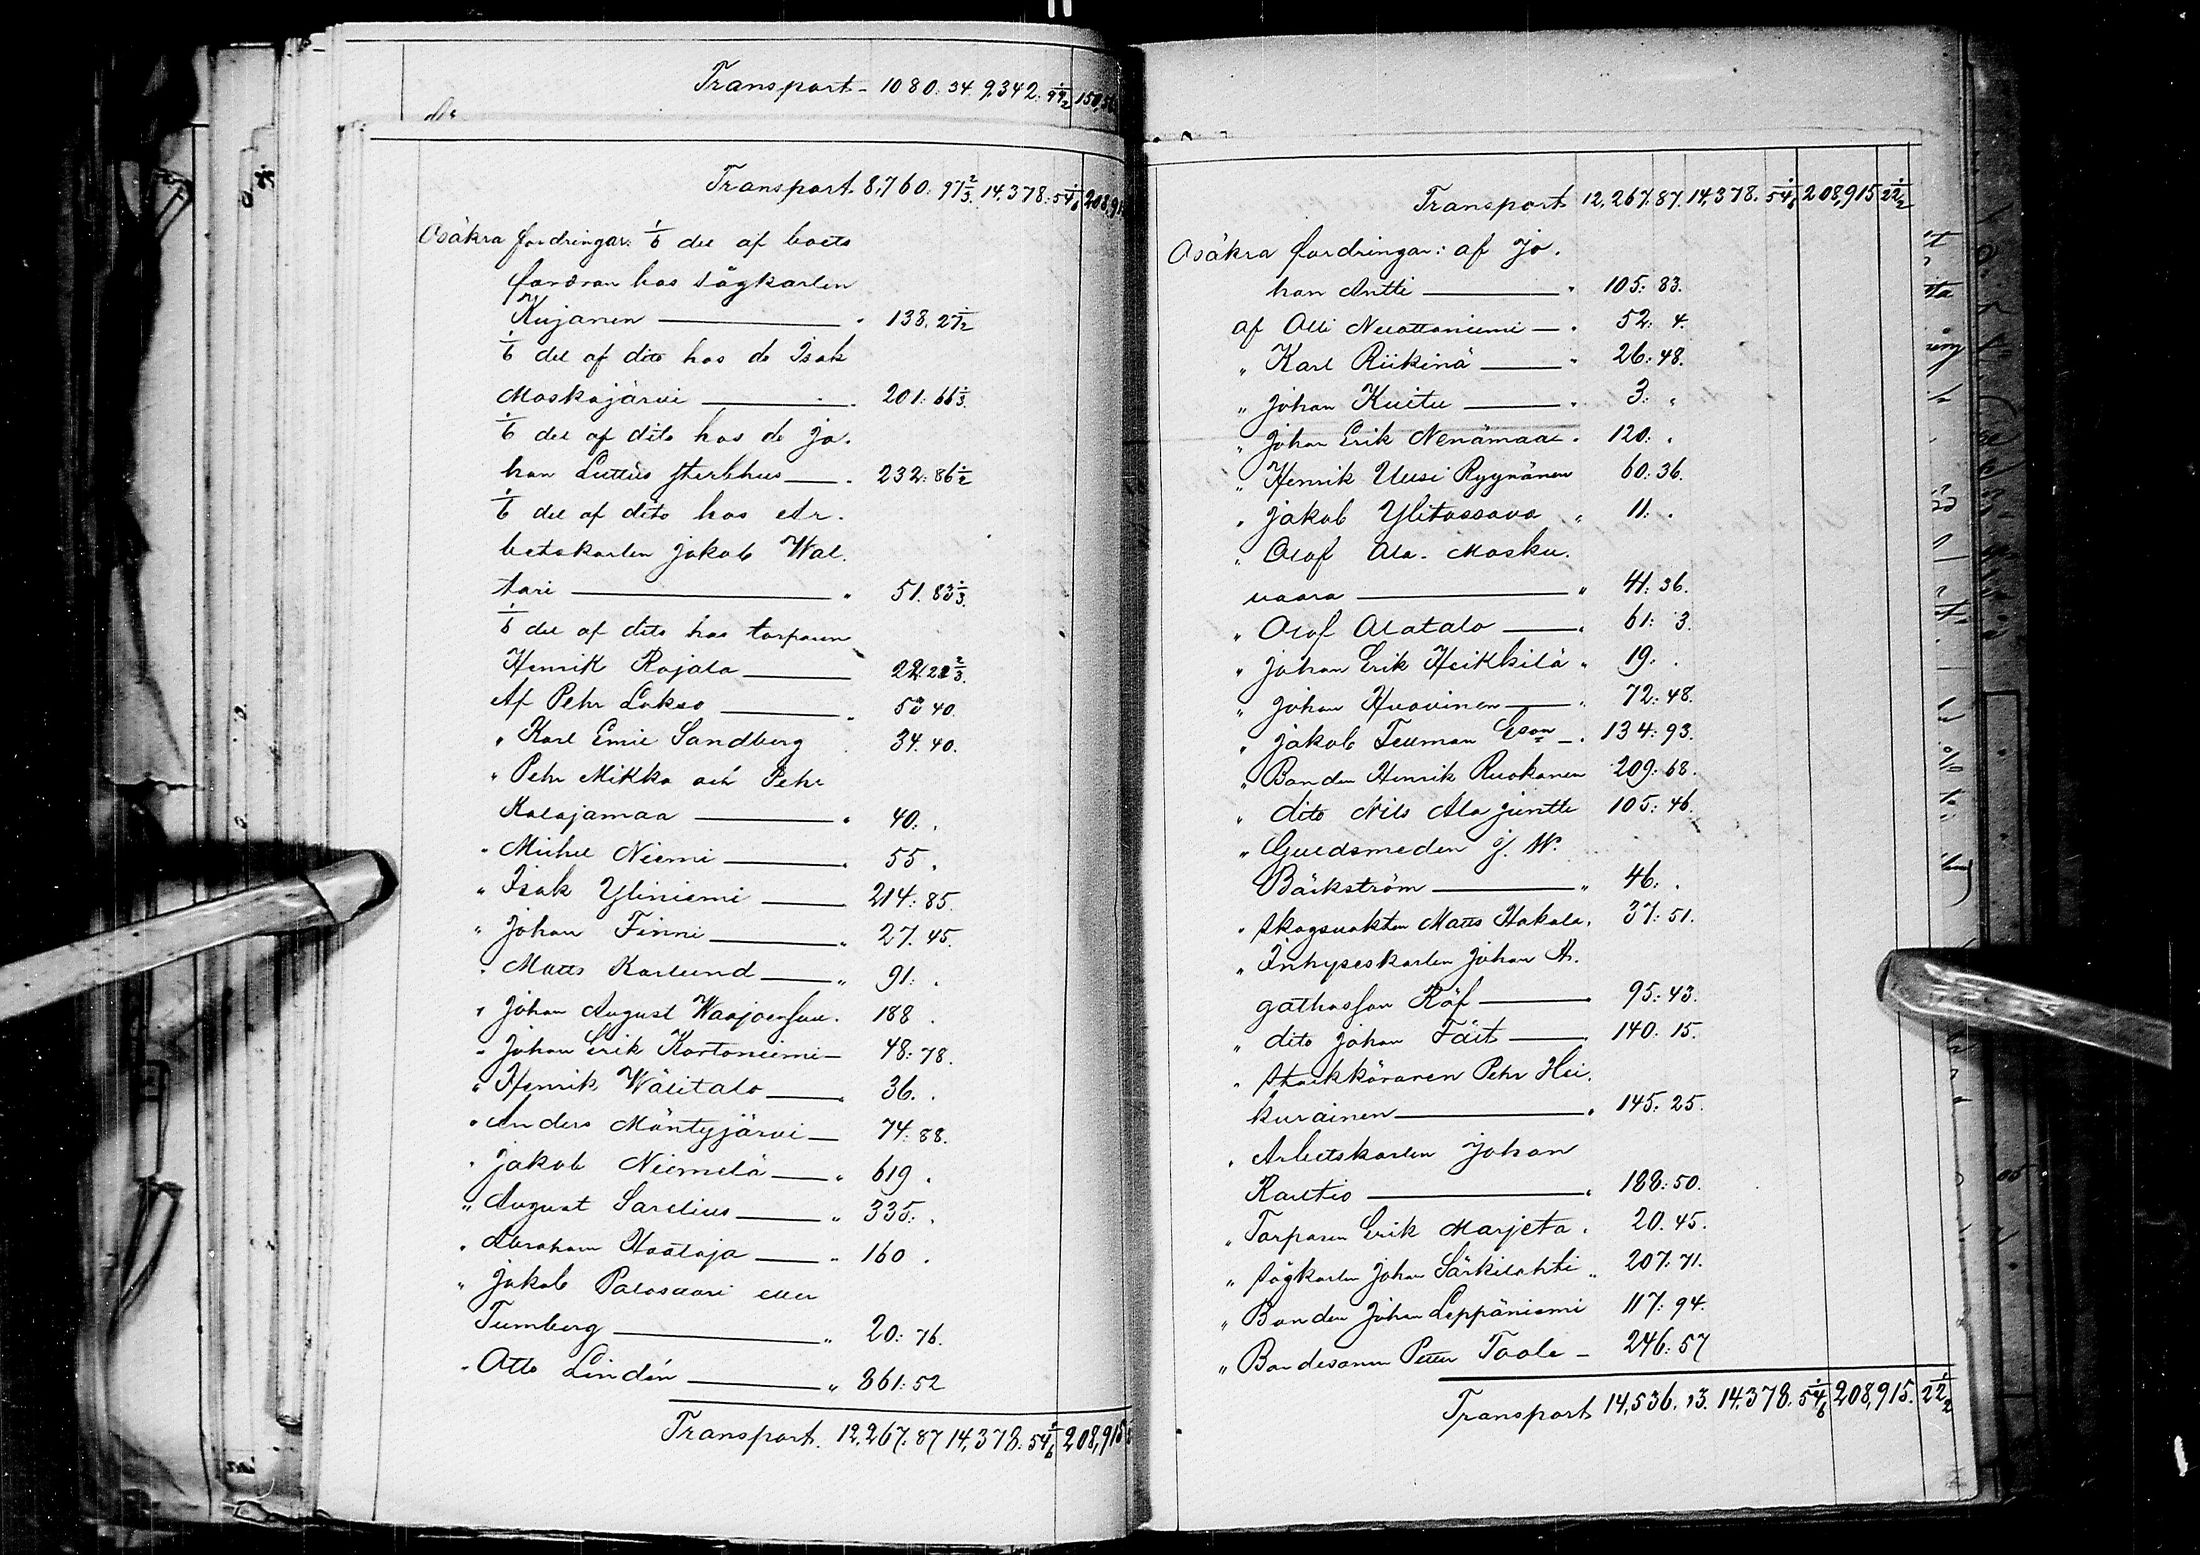 Transport - 1080. 34. 9,342. 99 1/2
Transport. 8,760. 97 2/3. 14,378. 54 1/6 208,91
Osäkra fordringar: 1/6 del af boets
fordran hos sågkarlen
Kujanen — 138. 27 1/2
1/6 del af dito hos do Isak
Moskojärvi — 201. 66 1/3.
1/6 del af dito hos do Jo-
han Luttus sterbhus — 232. 86 1/2
1/6 del af dito hos Ar-
betskarlen Jakob Wal-
tari — " 51. 83 1/3.
1/6 del af dito hos torparen
Henrik Rajala — 22 2/3.
Af Pehr Lakso — 40.
" Karl Emil Sandberg 34. 40.
" Pehr Mikko och Pehr
Kalajamaa — " 40. "
" Michel Niemi — 55 "
" Isak Yliniemi — 214. 85.
" Johan Finni — " 27. 45.
" Matts Karlund — " 91. "
" Johan August Waajoensuu. 188 "
" Johan Erik Kortoniemi — 48. 78.
" Henrik Wälitalo — " 36. "
" Anders Mäntyjärvi — 74. 88.
" Jakob Niemelä — " 619 "
" August Sarelius — " 335. "
" Abraham Haataja — " 160 "
" Jakob Palosaari eller
Tumberg — " 20. 76.
" Otto Lindén — " 861. 52
Transport. 12,267. 87 14,378. 54 1/6 208,915
Transport 12,267. 87. 14,378. 54 1/6 208,915 22 1/2
Osäkra fordringar: af Jo-
han Antti — " 105. 83.
af Olli Neuottoniemi — " 52. 4.
" Karl Riikinä — " 26. 48.
" Johan Kuitu — " 3. "
" Johan Erik Nenämaa " 120. "
" Henrik Uusi Ryynänen 60. 36.
" Jakob Ylitossava " 11. "
" Olof Ala-Mosku-
vaara — " 41. 36.
" Olof Alatalo — " 61. 3.
" Johan Erik Heikkilä " 19. "
" Johan Huovinen — " 72. 48.
" Jakob Teuman Eson — " 134. 93.
" Bonden Henrik Ruokanen 209. 68.
" dito Nils Ala Juntti 105. 46.
" Guldsmeden J. W.
Bäckström — " 46. "
" Skogsvakten Matts Hakala. 37. 51.
" Inhyseskarlen Johan A-
gathasson Räf — " 95. 43.
" dito Johan Fält — 140. 15.
" Stockköraren Pehr Hei-
kurainen — " 145. 25.
" Arbetskarlen Johan
Rautio — " 188. 50.
" Torparen Erik Marjeta " 20. 45.
" Sågkarlen Johan Särkilahti " 207. 71.
" Bonden Johan Leppäniemi 117. 94.
" Bondesonen Petter Taala — 246. 57
Transport 14,536. 13. 14,378. 54 1/6 208,915. 22 1/2